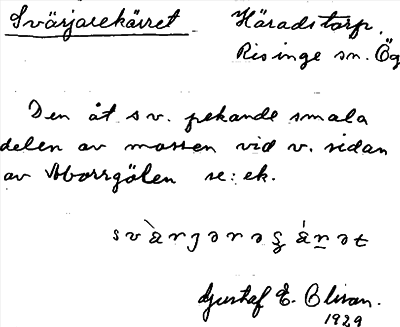 Svärjarekärret Häradstorp,
Risinge sn. Ög
Den åt sv. pekande smala
delen av mossen vid v. sidan
av Aborrgölen se: ek.
Gustaf E. Olison.
1929